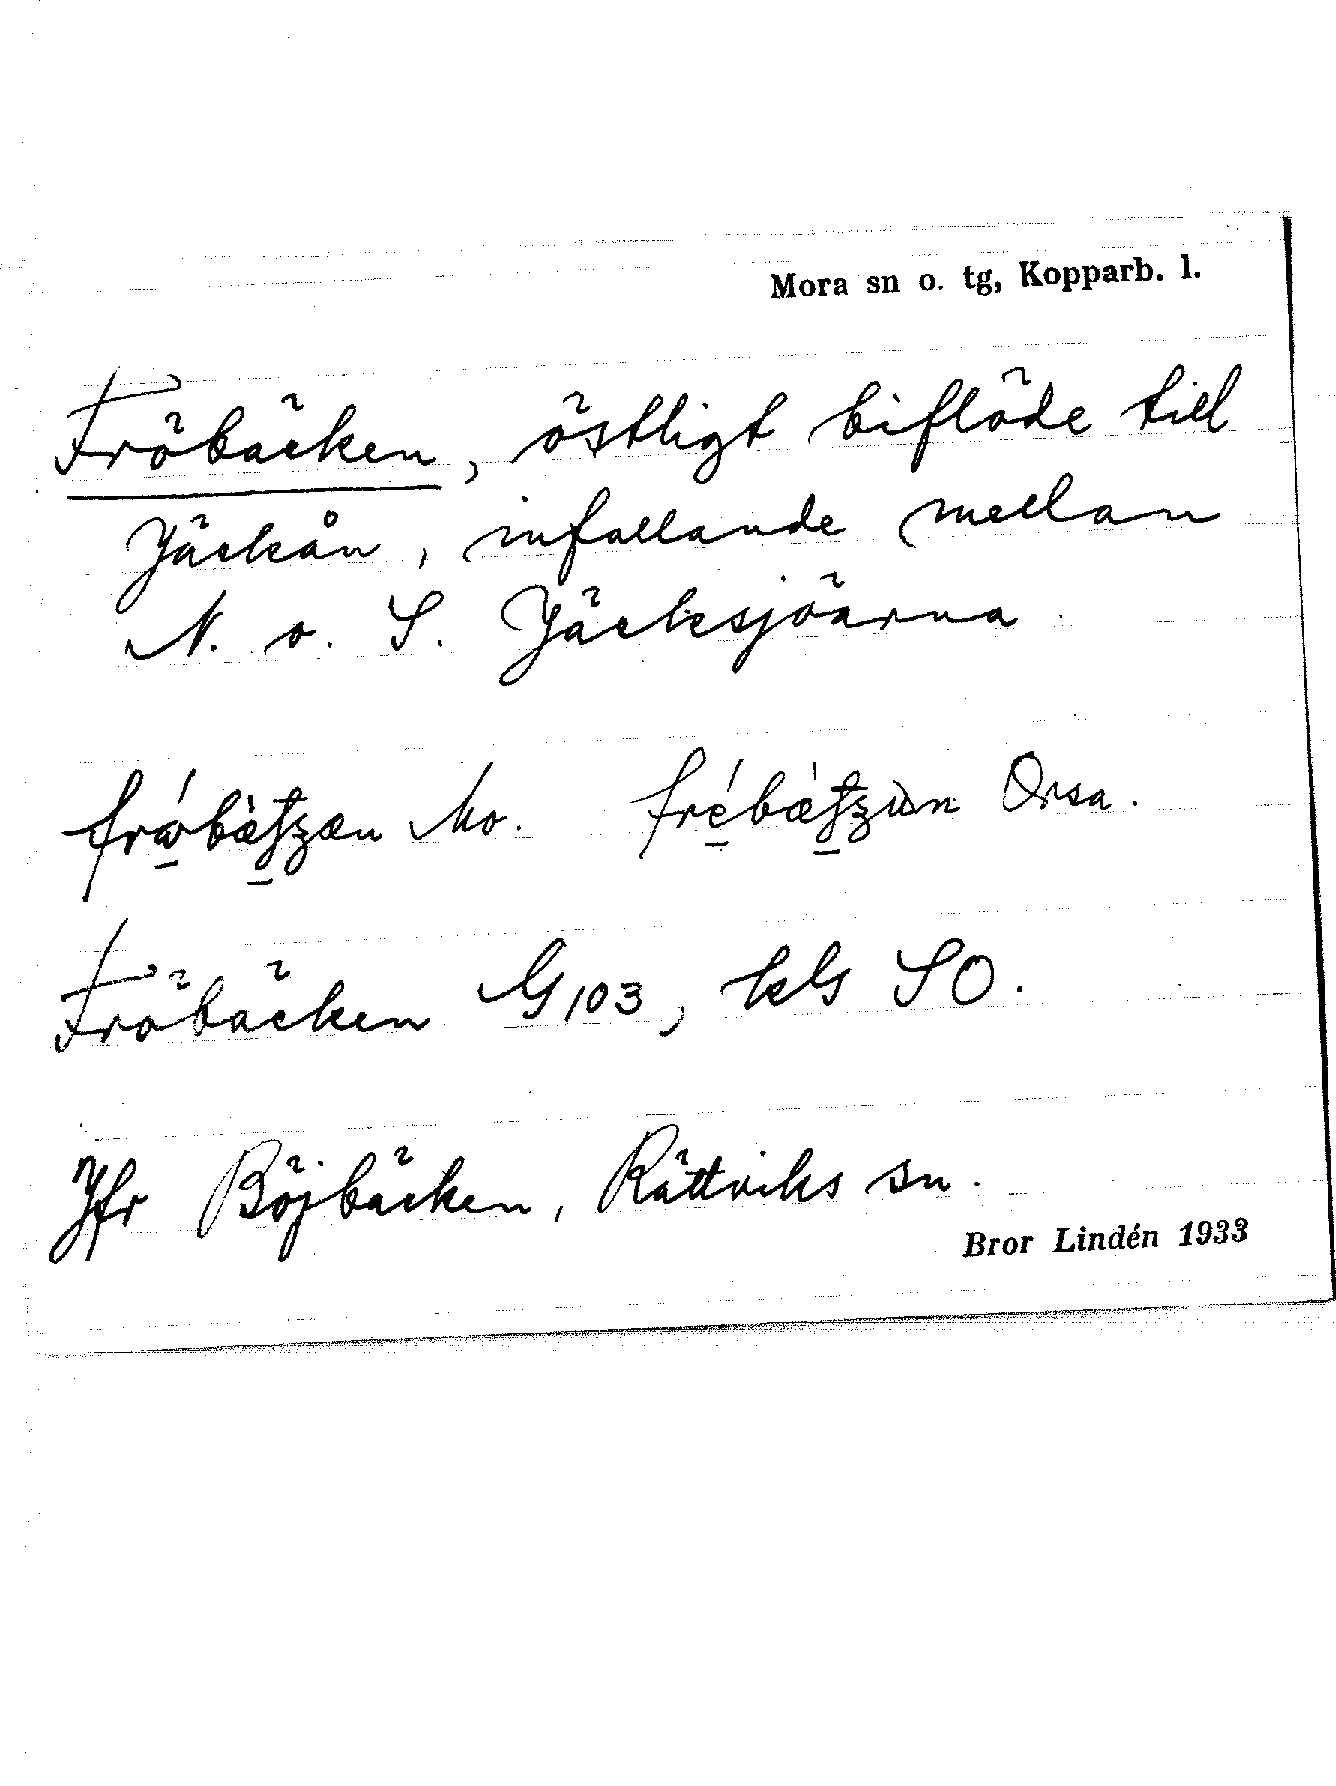 Mora sn o. tg, Kopparb. l.
Fröbäcken, östligt biflöde till
Jäckån, infallande mellan
N. o. S. Jäcksjöarna.
Mo. Orsa.
Fröbäcken G103, bls SO.
Jfr Böjbäcken, Rättviks sn.
Bror Lindén 1933